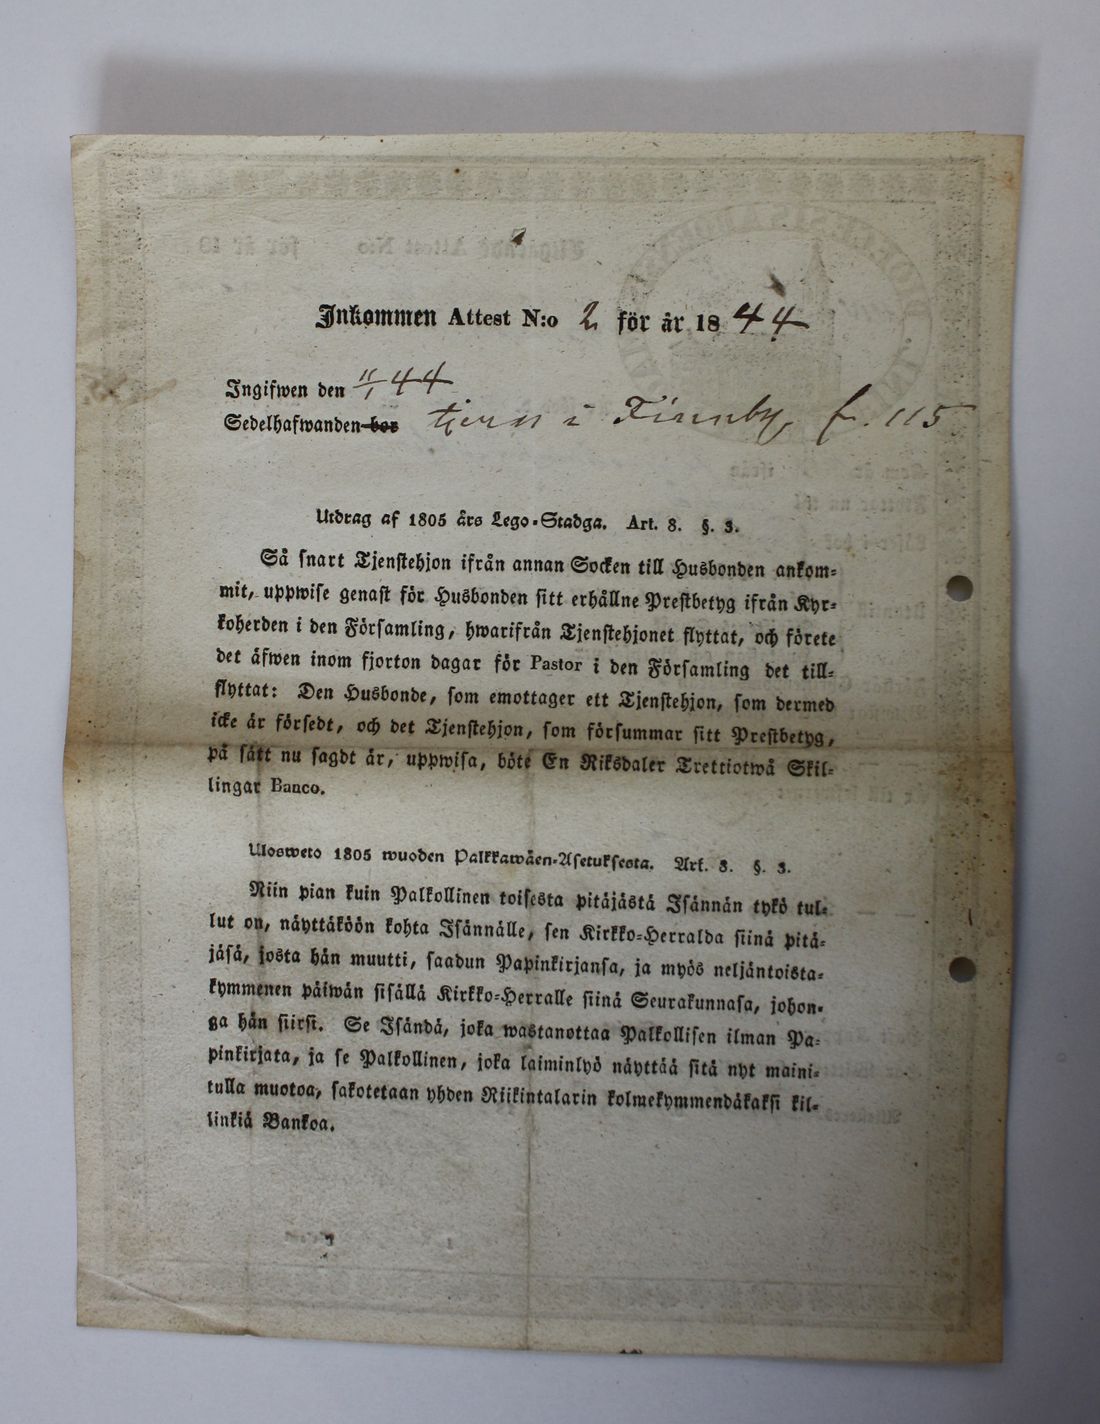 Inkommen Attest N:o 2 för år 1844
Ingifwen den 11/1 44
Sedelhafwanden bor i Finnby, f. 115
Utdrag af 1805 års Lego-Stadga. Art. 8. §. 3.
Så snart Tjenstehjon ifrån annan Socken till Husbonden ankom-
mit, uppwise genast för Husbonden sitt erhållne Prestbetyg ifrån Kyr-
koherden i den Församling, hwarifrån Tjenstehjonet flyttat, och förete
det äfwen inom fjorton dagar för Pastor i den Församling det till-
flyttat: Den Husbonde, som emottager ett Tjenstehjon, som dermed
icke är försedt, och det Tjenstehjon, som försummar sitt Prestbetyg,
på sätt nu sagdt är, uppwisa, böte En Riksdaler Trettiotwå Skil-
lingar Banco.
Ulosweto 1805 wuoden Palkkawäen-Asetuksesta. Art. 8. §. 3.
Niin pian kuin Palkollinen toisesta pitäjästä Isännän tykö tul-
lut on, näyttäköön kohta Isännälle, sen Kirkko-Herralda siinä pitä-
jäsä, josta hän muutti, saadun Papinkirjansa, ja myös neljäntoista-
kymmenen päiwän sisällä Kirkko-Herralle siinä Seurakunnasa, johon-
ga hän siirsi. Se Isändä, joka wastanottaa Palkollisen ilman Pa-
pinkirjata, ja se Palkollinen, joka laiminlyö näyttää sitä nyt maini-
tulla muotoa, sakotetaan yhden Riikintalarin kolmekymmendäkaksi kil-
linkiä Bankoa.